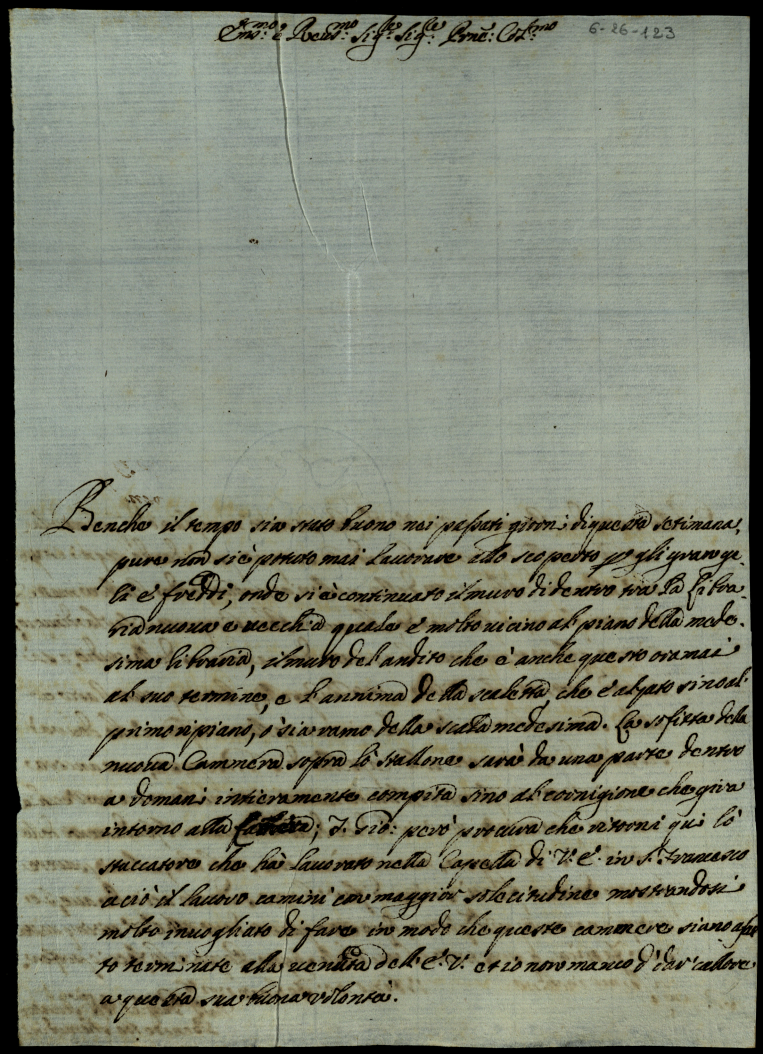 Em.mo: e Reud.mo: Sig.re Sig.re Prne: Col.mo
6-26-123
Benche il tempo sia stato buono nei passati giorni di questa setimana,
pure non si è potuto mai lavorare allo scoperto p gli gran ge-
li e freddi, onde si è continuato il muro di dentro tra la Libra-
ria nuoua e uecchia quale è molto uicino al piano della mede-
sima libraria, il muro del andito che è anche questo oramai
al suo termine, e l'annima della scaletta, che è alzato sino al
primo ripiano, ò sia ramo della scala medesima. La sofitta della
nuoua Cammera sopra lò stallone sarà da una parte dentro
a domani intieramente compita sino al cornigione che gira
intorno alla; I. Gio: però procura che ritorni qui lò
staccatore che hà lavorato nella Capella di V: E. in S. Francesco
aciò il lavoro camini con maggior solecitudine mostrandosi
molto inuogliato di fare in modo che queste cammere siano afat
to terminate alla uenuta dell'E: V: et io non manco d'dar callore
a questa sua buona uolontà.